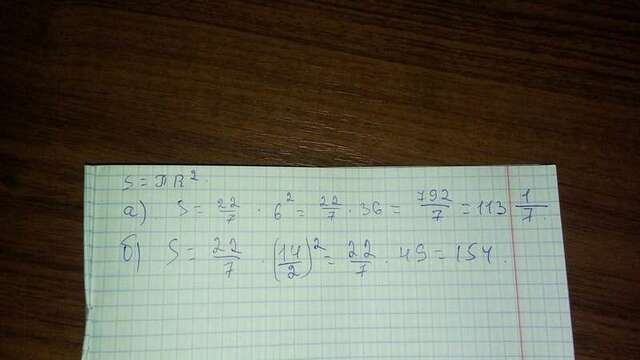 S = πR².
а) S = 22/7 · 6² = 22/7 · 36 = 792/7 = 113 1/7.
б) S = 22/7 · (14/2)² = 22/7 · 49 = 154.